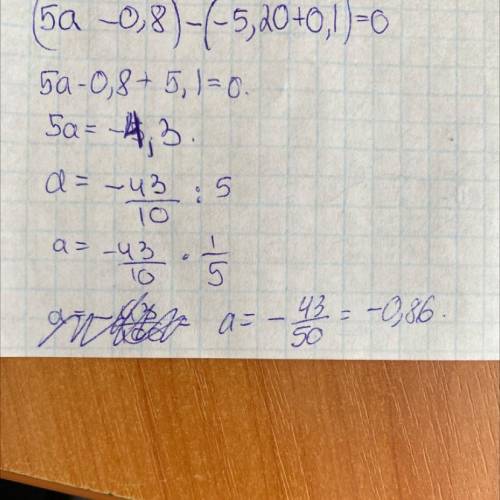 (5a - 0,8) - (-5,20 + 0,1) = 0
5a - 0,8 + 5,1 = 0.
5a = -4,3.
a = -43/10 : 5
a = -43/10 · 1/5
a = -43/50 = -0,86.